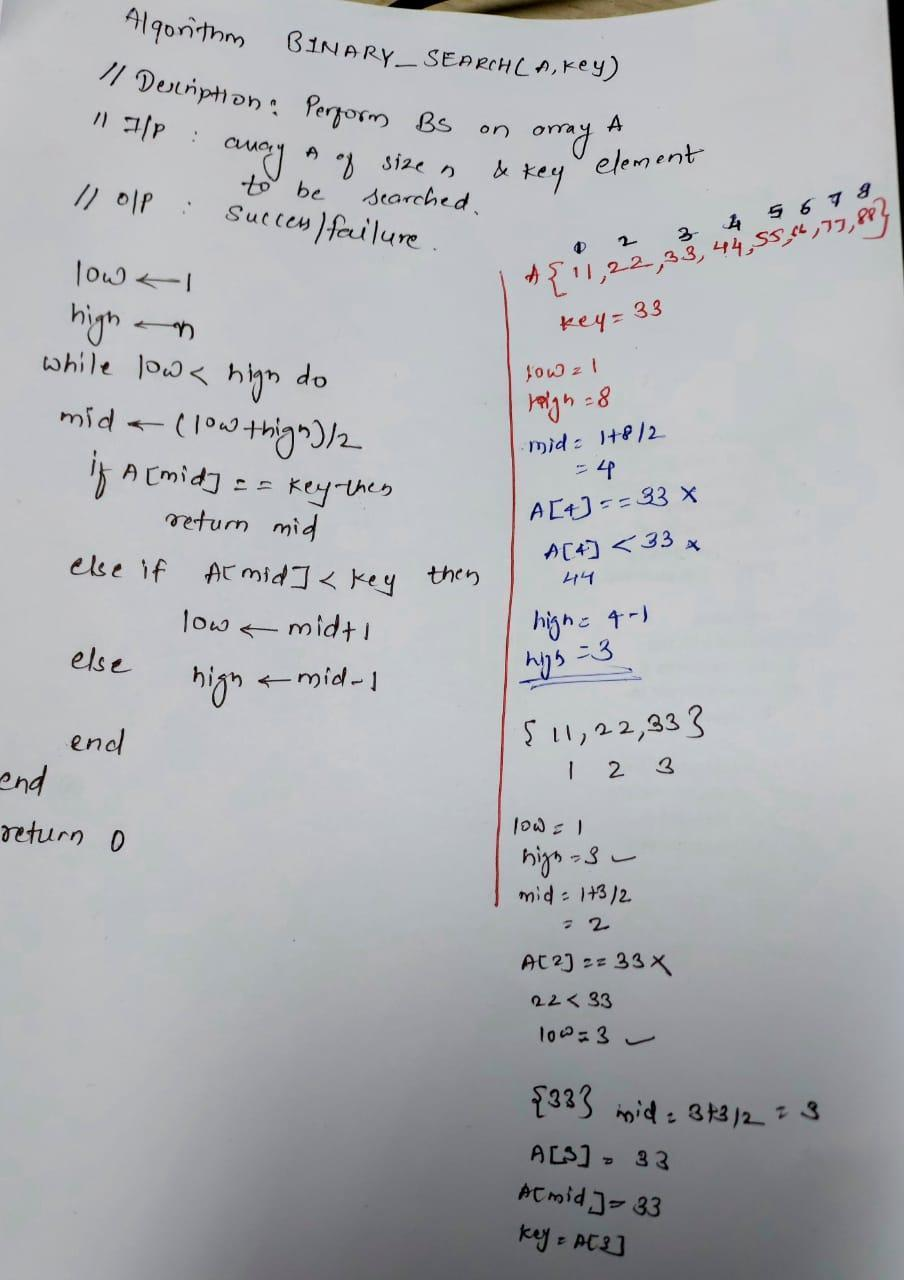 Algorithm BINARY_SEARCH(A, Key)
// Description: Perform BS on array A
// I/P : array A of size n & key element
to be searched.
// O/P : Success/failure.
low ← 1
high ← n
while low < high do
mid ← (low+high)/2
if A[mid] == key then
return mid
else if A[mid] < key then
low ← mid+1
else
high ← mid-1
end
end
return 0
1 2 3 4 5 6 7 8
A{11,22,33,44,55,66,77,88}
key = 33
low = 1
high = 8
mid = 1+8/2
= 4
A[4] == 33 ×
A[4] < 33 ×
44
high = 4-1
high = 3
{11,22,33}
1 2 3
low = 1
high = 3 ✓
mid = 1+3/2
= 2
A[2] == 33 ×
22 < 33
low = 3 ✓
{33} mid = 3+3/2 = 3
A[3] = 33
A[mid] = 33
key = A[3]